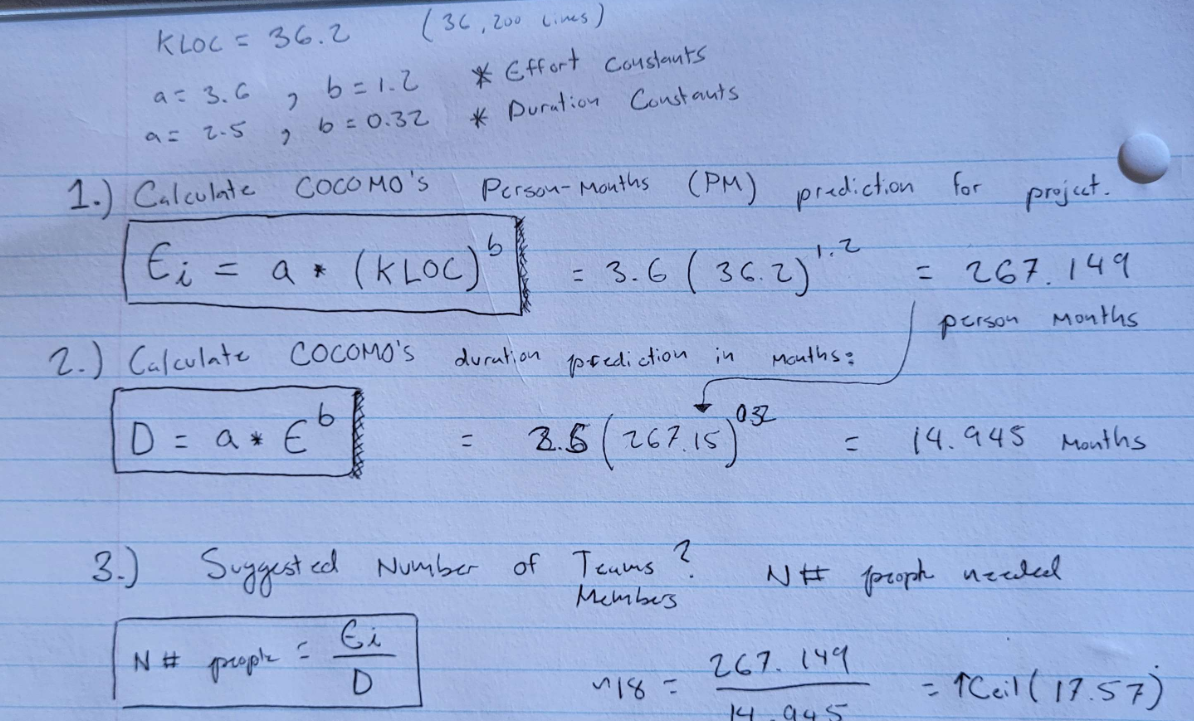 KLOC = 36.2 (36,200 Lines)
a = 3.6 , b = 1.2 * Effort Constants
a = 2.5 , b = 0.32 * Duration Constants
1.) Calculate COCOMO's Person-Months (PM) prediction for project.
Ei = a * (KLOC)^b = 3.6 (36.2)^1.2 = 267.149
person Months
2.) Calculate COCOMO's duration prediction in Months:
D = a * E^b = 2.5 (267.15)^0.32 = 14.945 Months
3.) Suggested Number of Teams? N# people needed
Members
N# people = Ei / D
~18 = 267.149 / 14.945 = ↑Ceil(17.57)